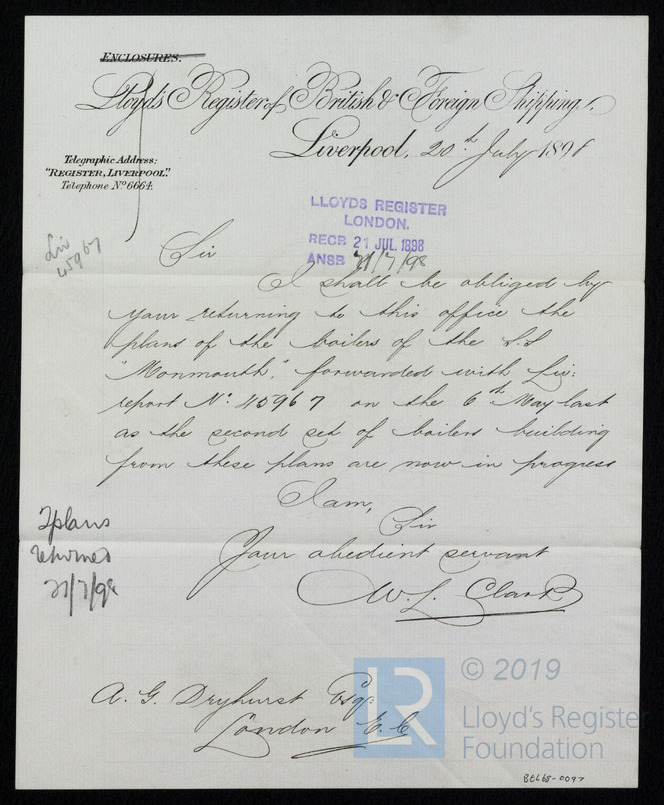 ENCLOSURES.
Lloyd's Register of British & Foreign Shipping.
Liverpool, 20th July 1898
Telegraphic Address;
"REGISTER, LIVERPOOL."
Telephone No 6664.
LLOYDS REGISTER
LONDON.
RECR 21 JUL. 1898
ANSR 21/7/98
Liv
45967
Sir
I shall be obliged by
your returning to this office the
plans of the boilers of the S.S
"Monmouth". forwarded with Liv:
report No. 45967 on the 6th May last
as the second set of boilers building
from these plans are now in progress
I am,
Sir
Your obedient servant
W. L. Clark
2 plans
returned
21/7/98
A. G. Dryhurst Esqr:
London E.C
LR
© 2019
Lloyd's Register
Foundation
BEL68-0097